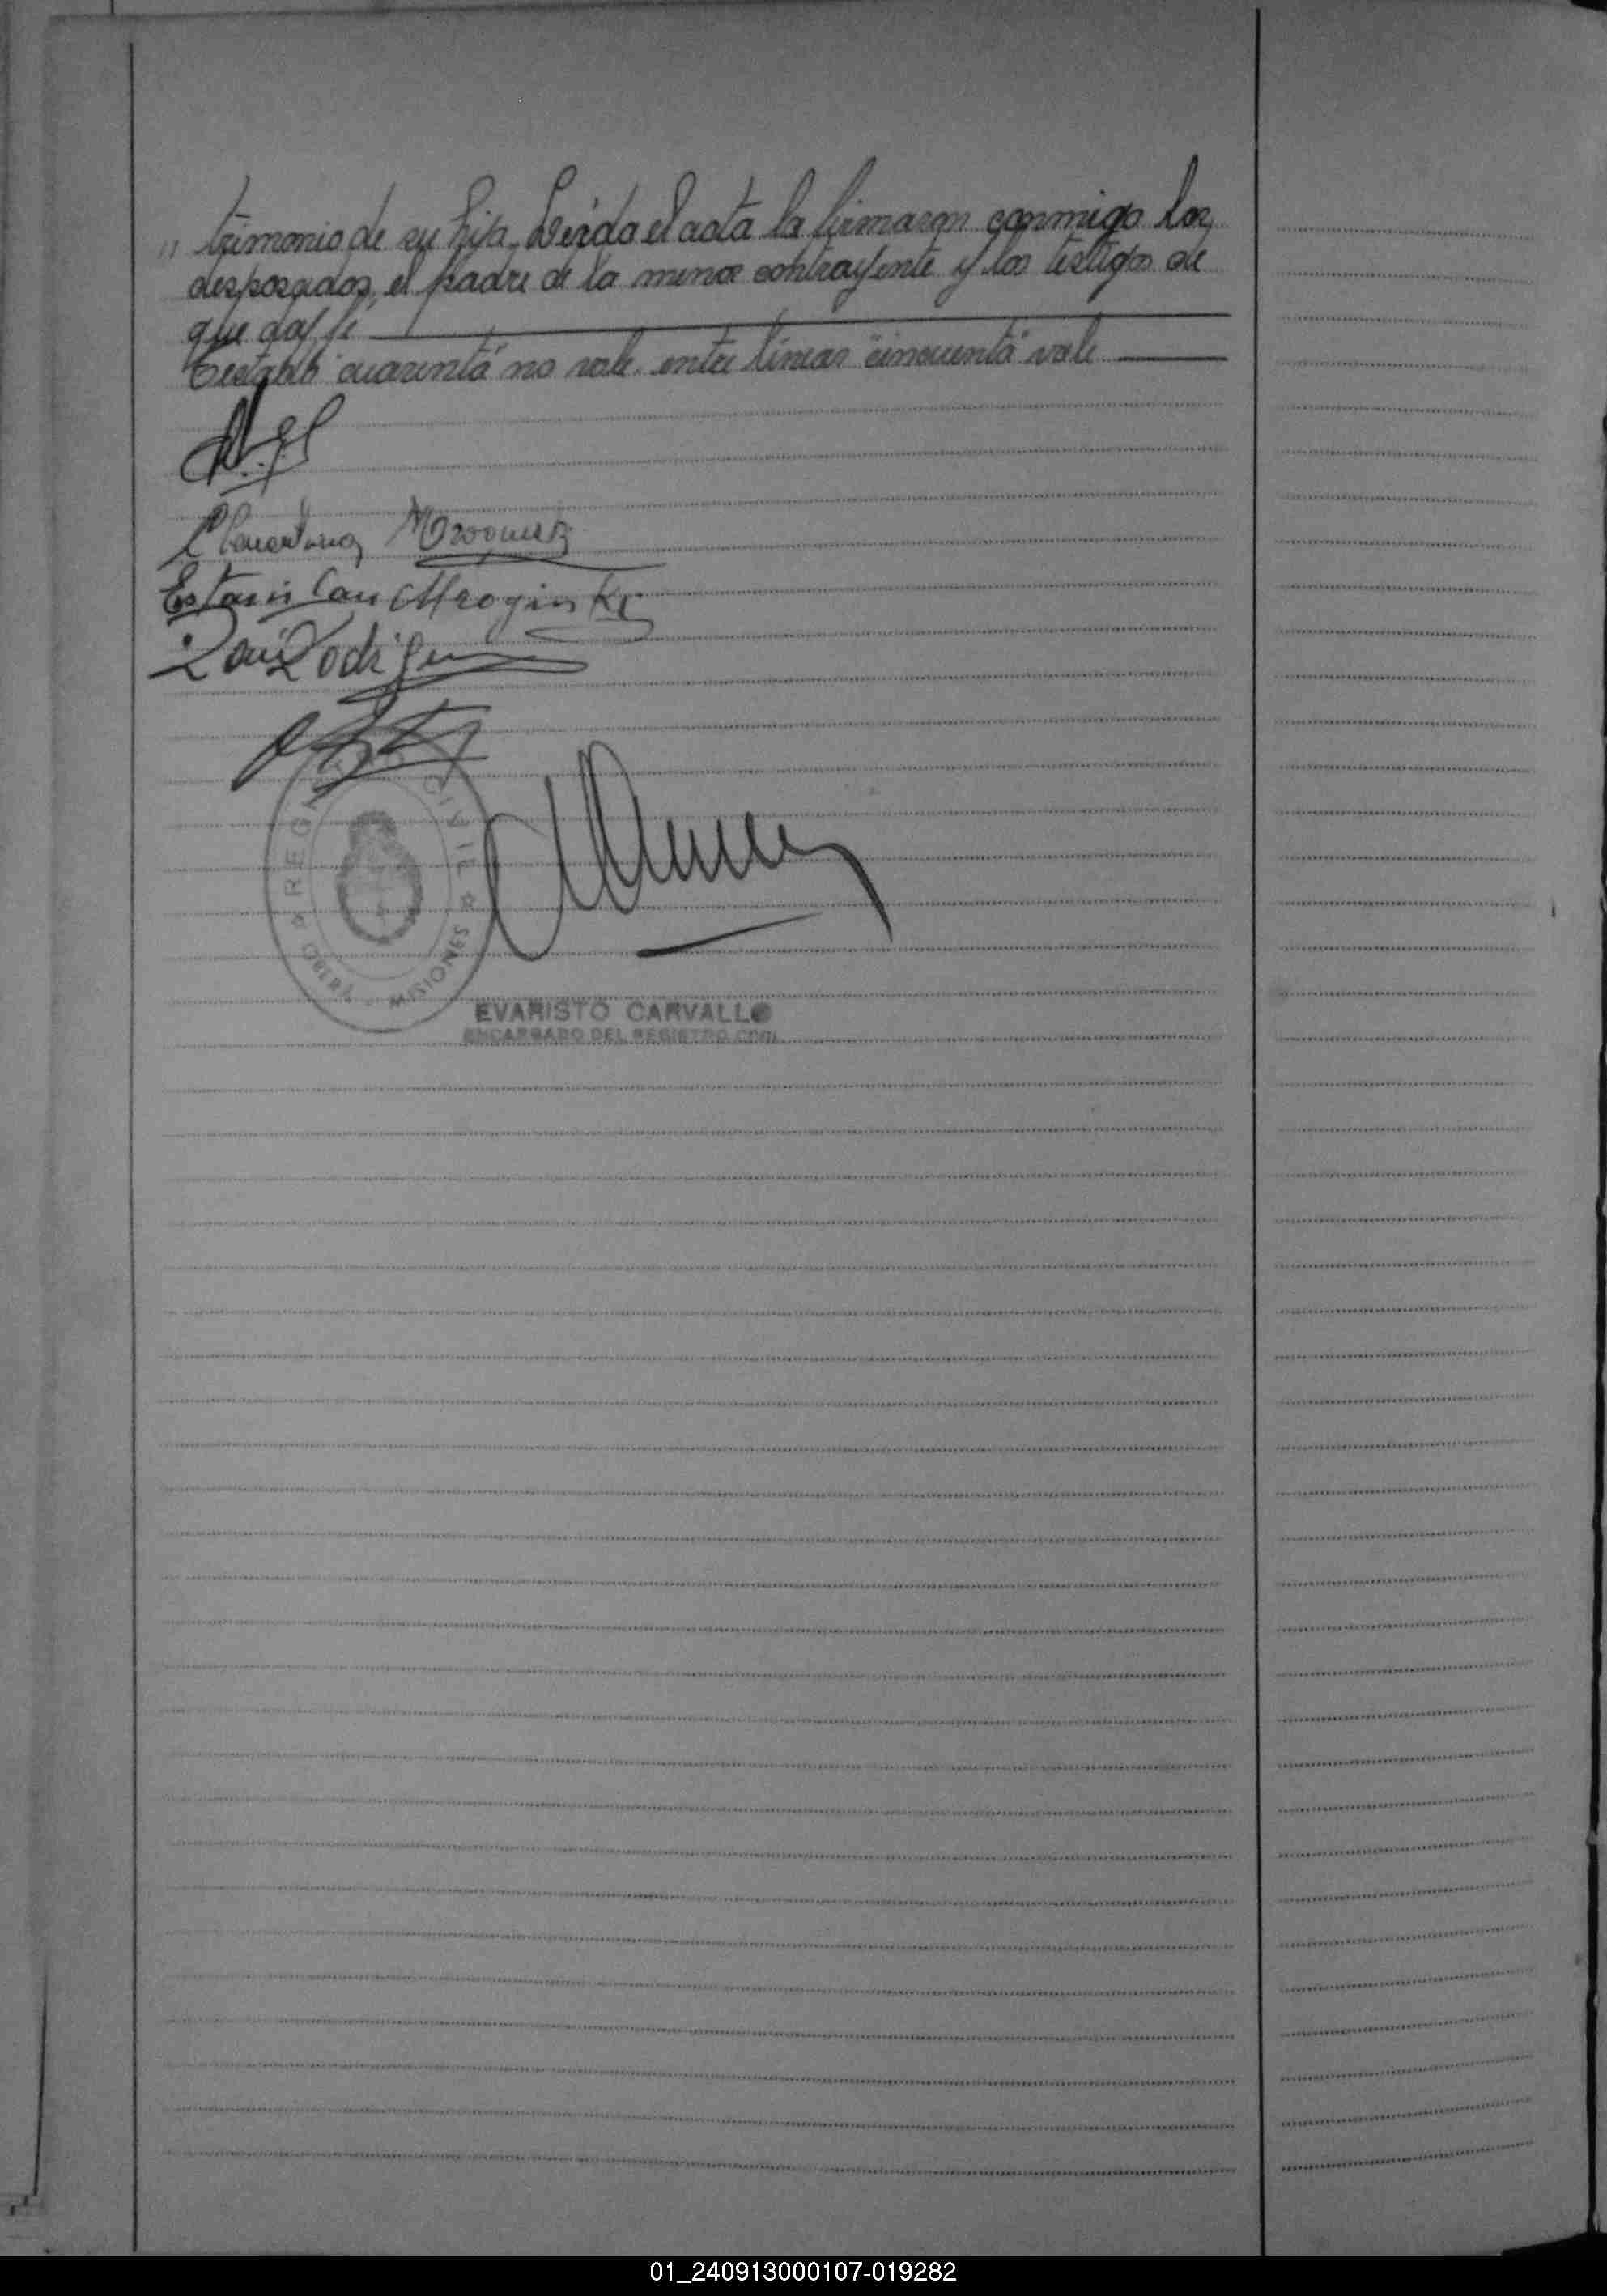 " trimonio de su hija. Leida el acta la firmaron conmigo los
desposados, el padre de la menor contrayente y los testigos de
que doy fé
Testado "cuarenta" no vale. entre lineas "cincuenta" vale
Estanislau Mroginski
Luis Rodrigue
REGISTRO CIVIL
OBERÁ - MISIONES
EVARISTO CARVALLO
ENCARGADO DEL REGISTRO CIVIL
01_240913000107-019282